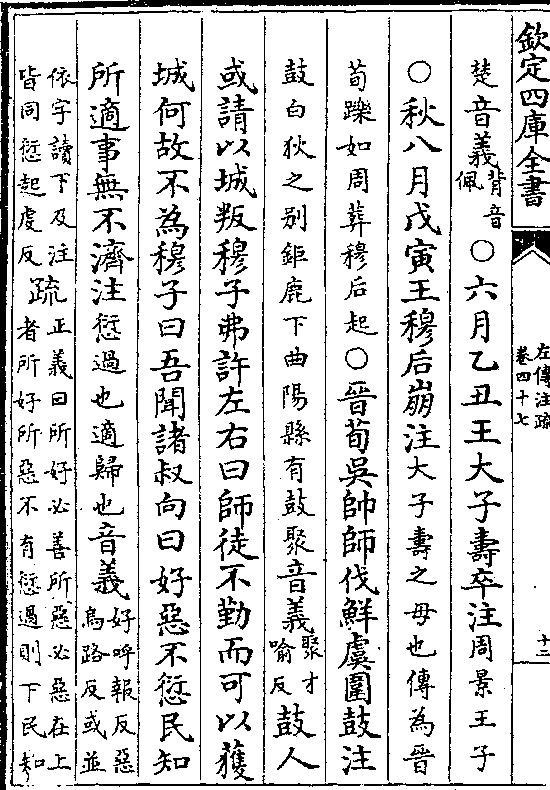 欽定四庫全書
左傳注疏
卷四十七
十二
楚音義背音
佩○六月乙丑王大子壽卒注周景王子
○秋八月戊寅王穆后崩注大子壽之母也傳為晉
荀躒如周葬穆后起○晉荀吳帥師伐鮮虞圍鼓注
鼓白狄之別鉅鹿下曲陽縣有鼓聚音義聚才
喻反鼓人
或請以城叛穆子弗許左右曰師徒不勤而可以獲
城何故不為穆子曰吾聞諸叔向曰好惡不愆民知
所適事無不濟注愆過也適歸也音義好呼報反惡
烏路反或並
依字讀下及注
皆同愆起虔反疏正義曰所好必善所惡必惡在上
者所好所惡不有愆過則下民知